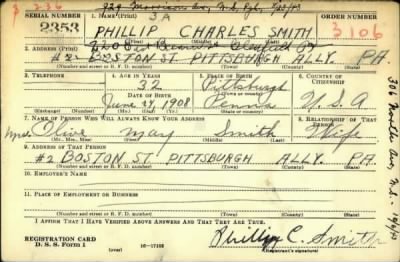 3 - 236
SERIAL NUMBER 1. NAME (Print) ORDER NUMBER
2353 PHILLIP CHARLES SMITH 3106
(First) (Middle) (Last)
2. ADDRESS (Print)
#2 BOSTON ST. PITTSBURGH ALLY. PA.
(Number and street or R. F. D. number) (Town) (County) (State)
3. TELEPHONE 4. AGE IN YEARS 5. PLACE OF BIRTH 6. COUNTRY OF CITIZENSHIP
32 Pittsburgh
DATE OF BIRTH (Town or county)
June 24, 1908 Penna U.S.A
(Exchange) (Number) (Mo.) (Day) (Yr.) (State or country)
7. NAME OF PERSON WHO WILL ALWAYS KNOW YOUR ADDRESS 8. RELATIONSHIP OF THAT PERSON
Mrs Olive May Smith Wife
(Mr., Mrs., Miss) (First) (Middle) (Last)
9. ADDRESS OF THAT PERSON
#2 BOSTON ST. PITTSBURGH ALLY. PA.
(Number and street or R. F. D. number) (Town) (County) (State)
10. EMPLOYER'S NAME
11. PLACE OF EMPLOYMENT OR BUSINESS
(Number and street or R. F. D. number) (Town) (County) (State)
I AFFIRM THAT I HAVE VERIFIED ABOVE ANSWERS AND THAT THEY ARE TRUE.
REGISTRATION CARD
D. S. S. Form 1 (over) 16-17105 Phillip C. Smith
(Registrant's signature)